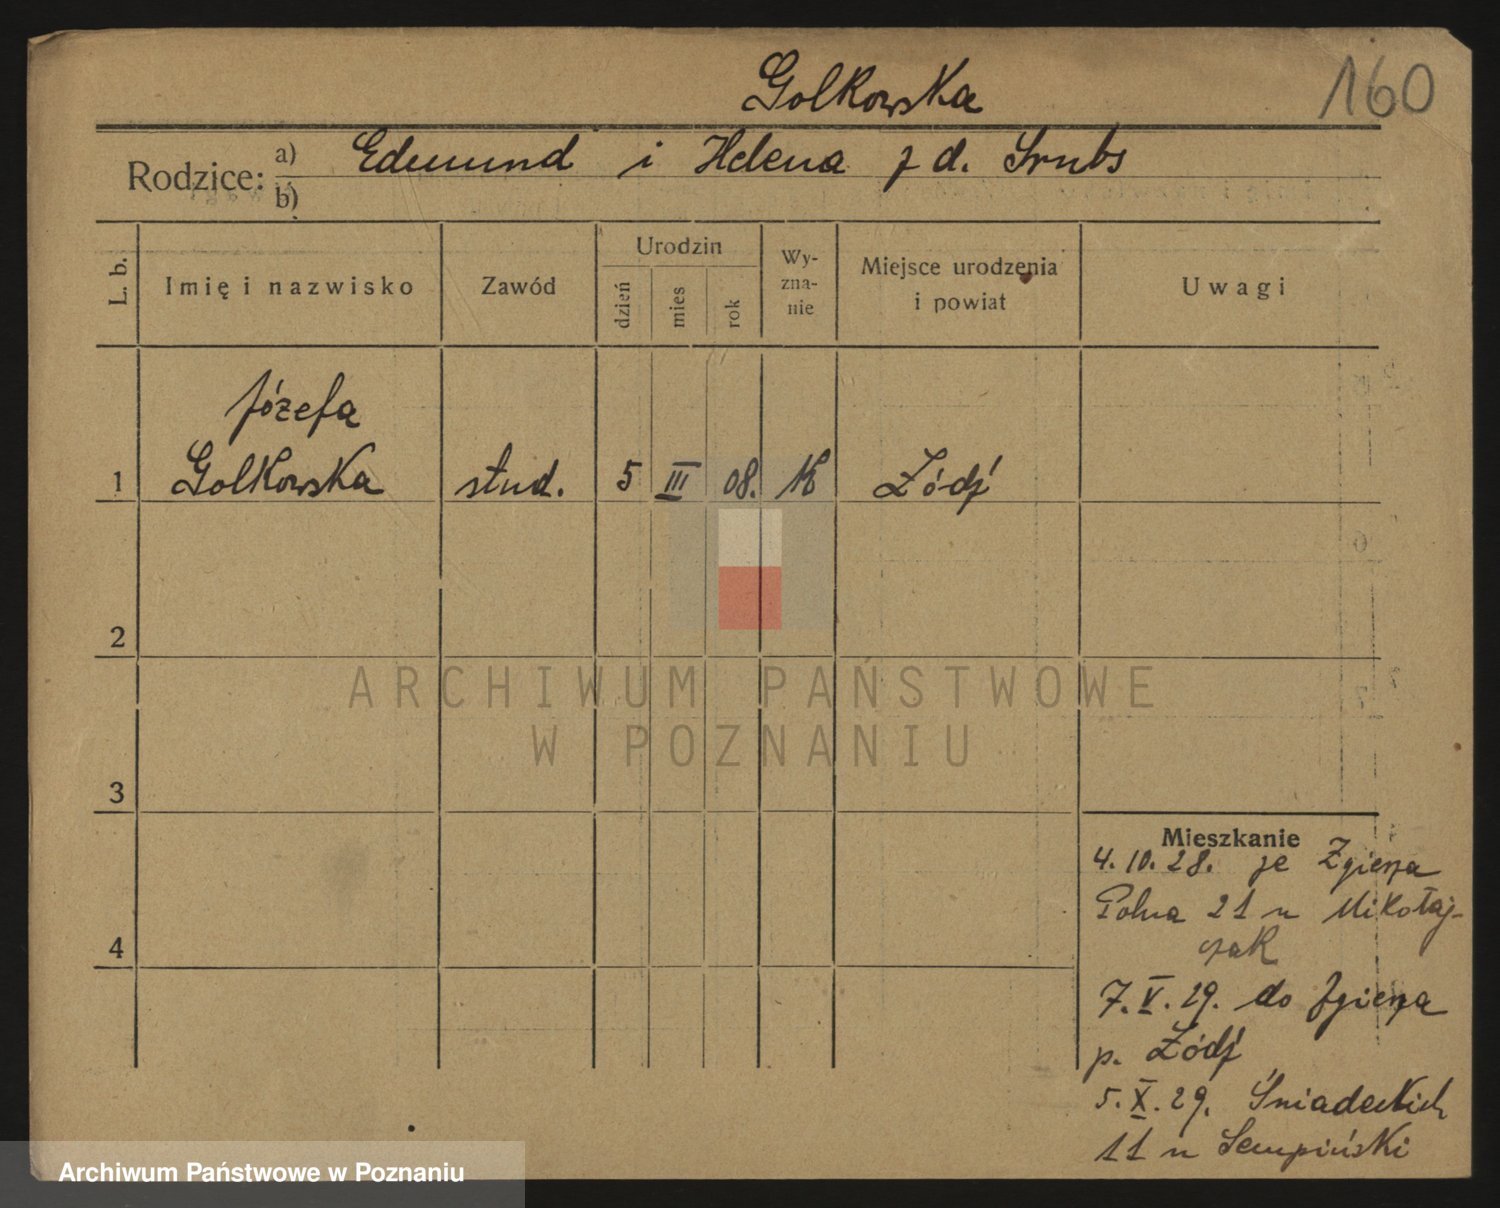 Golkowska
160
Rodzice: a) Edmund i Helena z d. Srubs
b)
L. b.
Imię i nazwisko
Zawód
Urodzin
dzień
mies
rok
Wy-
zna-
nie
Miejsce urodzenia
i powiat
Uwagi
Józefa
1 Golkowska stud. 5 III 08. K Łódź
2
3
4
ARCHIWUM PAŃSTWOWE
W POZNANIU
Mieszkanie
4. 10. 28. ze Zgierza
Polna 21 u Mikołaj-
czak
7. V. 29. do Zgierza
p. Łódź
5. X. 29. Śniadeckich
11 u Sempiński
Archiwum Państwowe w Poznaniu